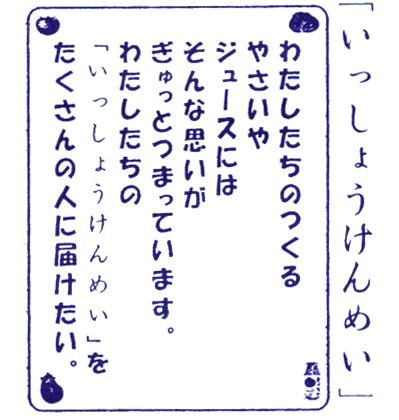 「いっしょうけんめい」
わたしたちのつくる
やさいや
ジュースには
そんな思いが
ぎゅっとつまっています。
わたしたちの
「いっしょうけんめい」を
たくさんの人に届けたい。